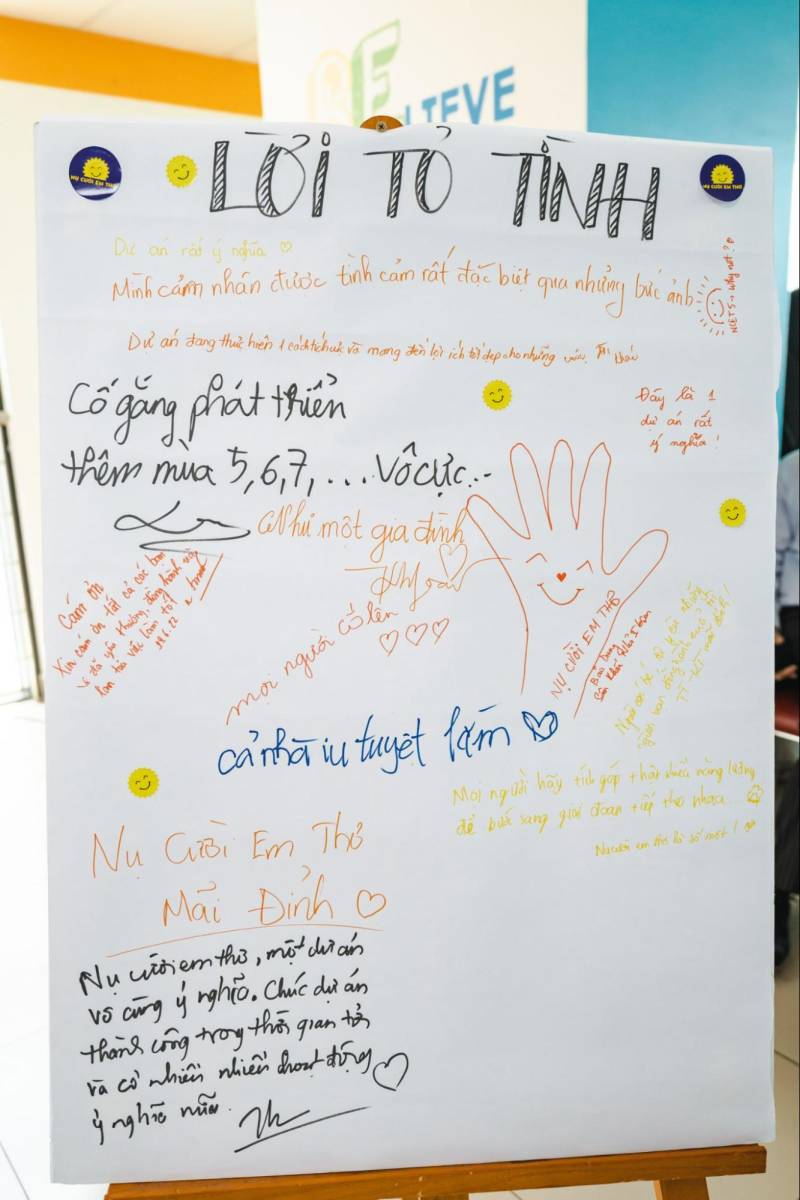 RE
LIEVE
LỜI TỎ TÌNH
NỤ CƯỜI EM THƠ
NỤ CƯỜI EM THƠ
Dự án rất ý nghĩa ♡
Mình cảm nhận được tình cảm rất đặc biệt qua những bức ảnh
why not?
Dự án đang thực hiện 1 cách tích cực và mang đến lợi ích tốt đẹp cho những
Cố gắng phát triển
thêm mùa 5,6,7, ... Vô cực...
Đây là 1
dự án rất
ý nghĩa!
Như một gia đình
Cám ơn
Xin cám ơn tất cả các bạn
vì đã yêu thương, đồng hành với
lan tỏa việc làm tốt
mọi người cố lên
♡♡♡
NỤ CƯỜI EM THƠ
cả nhà iu tuyệt lắm ♡
Mọi người hãy tích góp thật nhiều năng lượng
để bước sang giai đoạn tiếp theo nhaaa
Nụ cười em thơ là số một! ♡
Nụ Cười Em Thơ
Mãi Đỉnh ♡
Nụ cười em thơ, một dự án
vô cùng ý nghĩa. Chúc dự án
thành công trong thời gian tới
và có nhiều nhiều hoạt động
ý nghĩa nữa. ♡